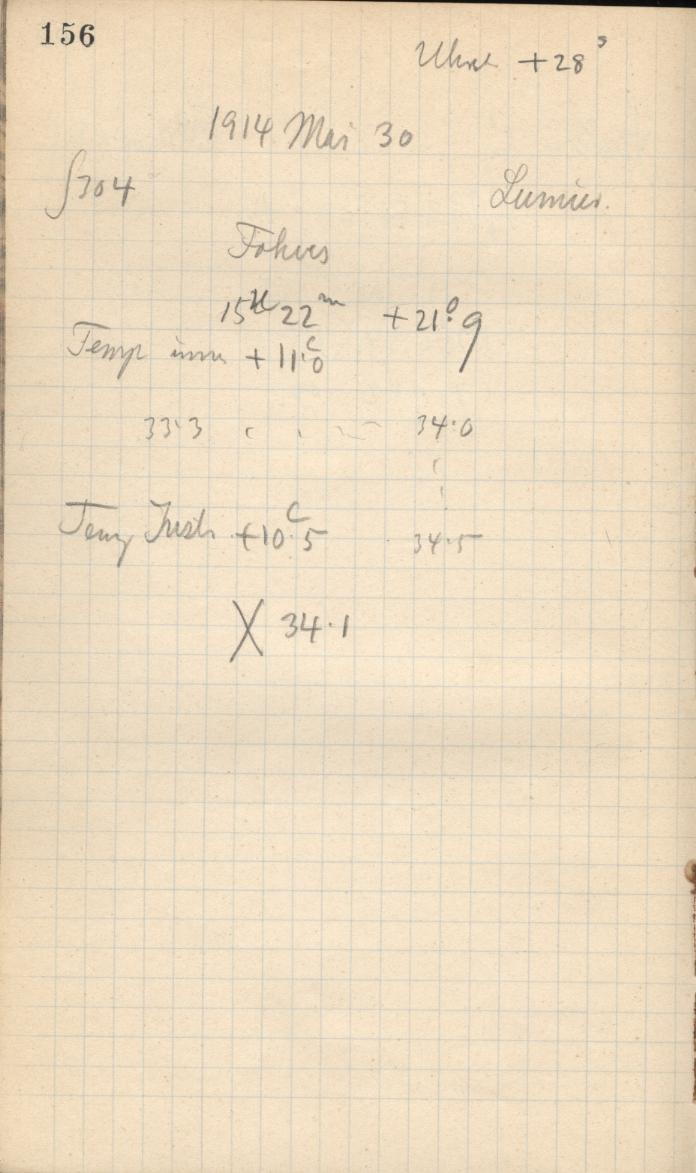 156
Uhr +28ˢ
1914 Mai 30
∫304 Lumier.
Fokus
15ʰ 22ᵐ +21°.9
Temp inn +11ᶜ.0
33.3 . . . 34.0
Temp +10ᶜ.5 34.5
X 34.1